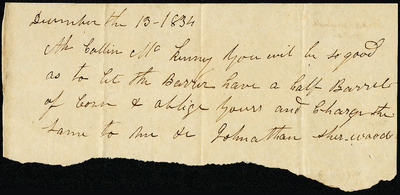 December the 13-1834
Mr Collin Mc Kinny you wil be so good
as to let the Barrer have a half Barrel
of Corn & oblige yours and Charge the
same to me &c Johnathan Sherwood